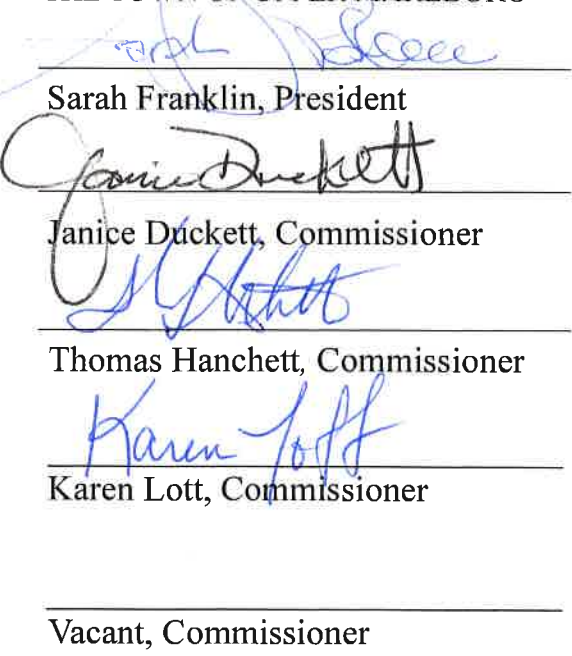 Sarah Franklin, President
Janice Duckett
Janice Duckett, Commissioner
Thomas Hanchett, Commissioner
Karen Lott
Karen Lott, Commissioner
Vacant, Commissioner